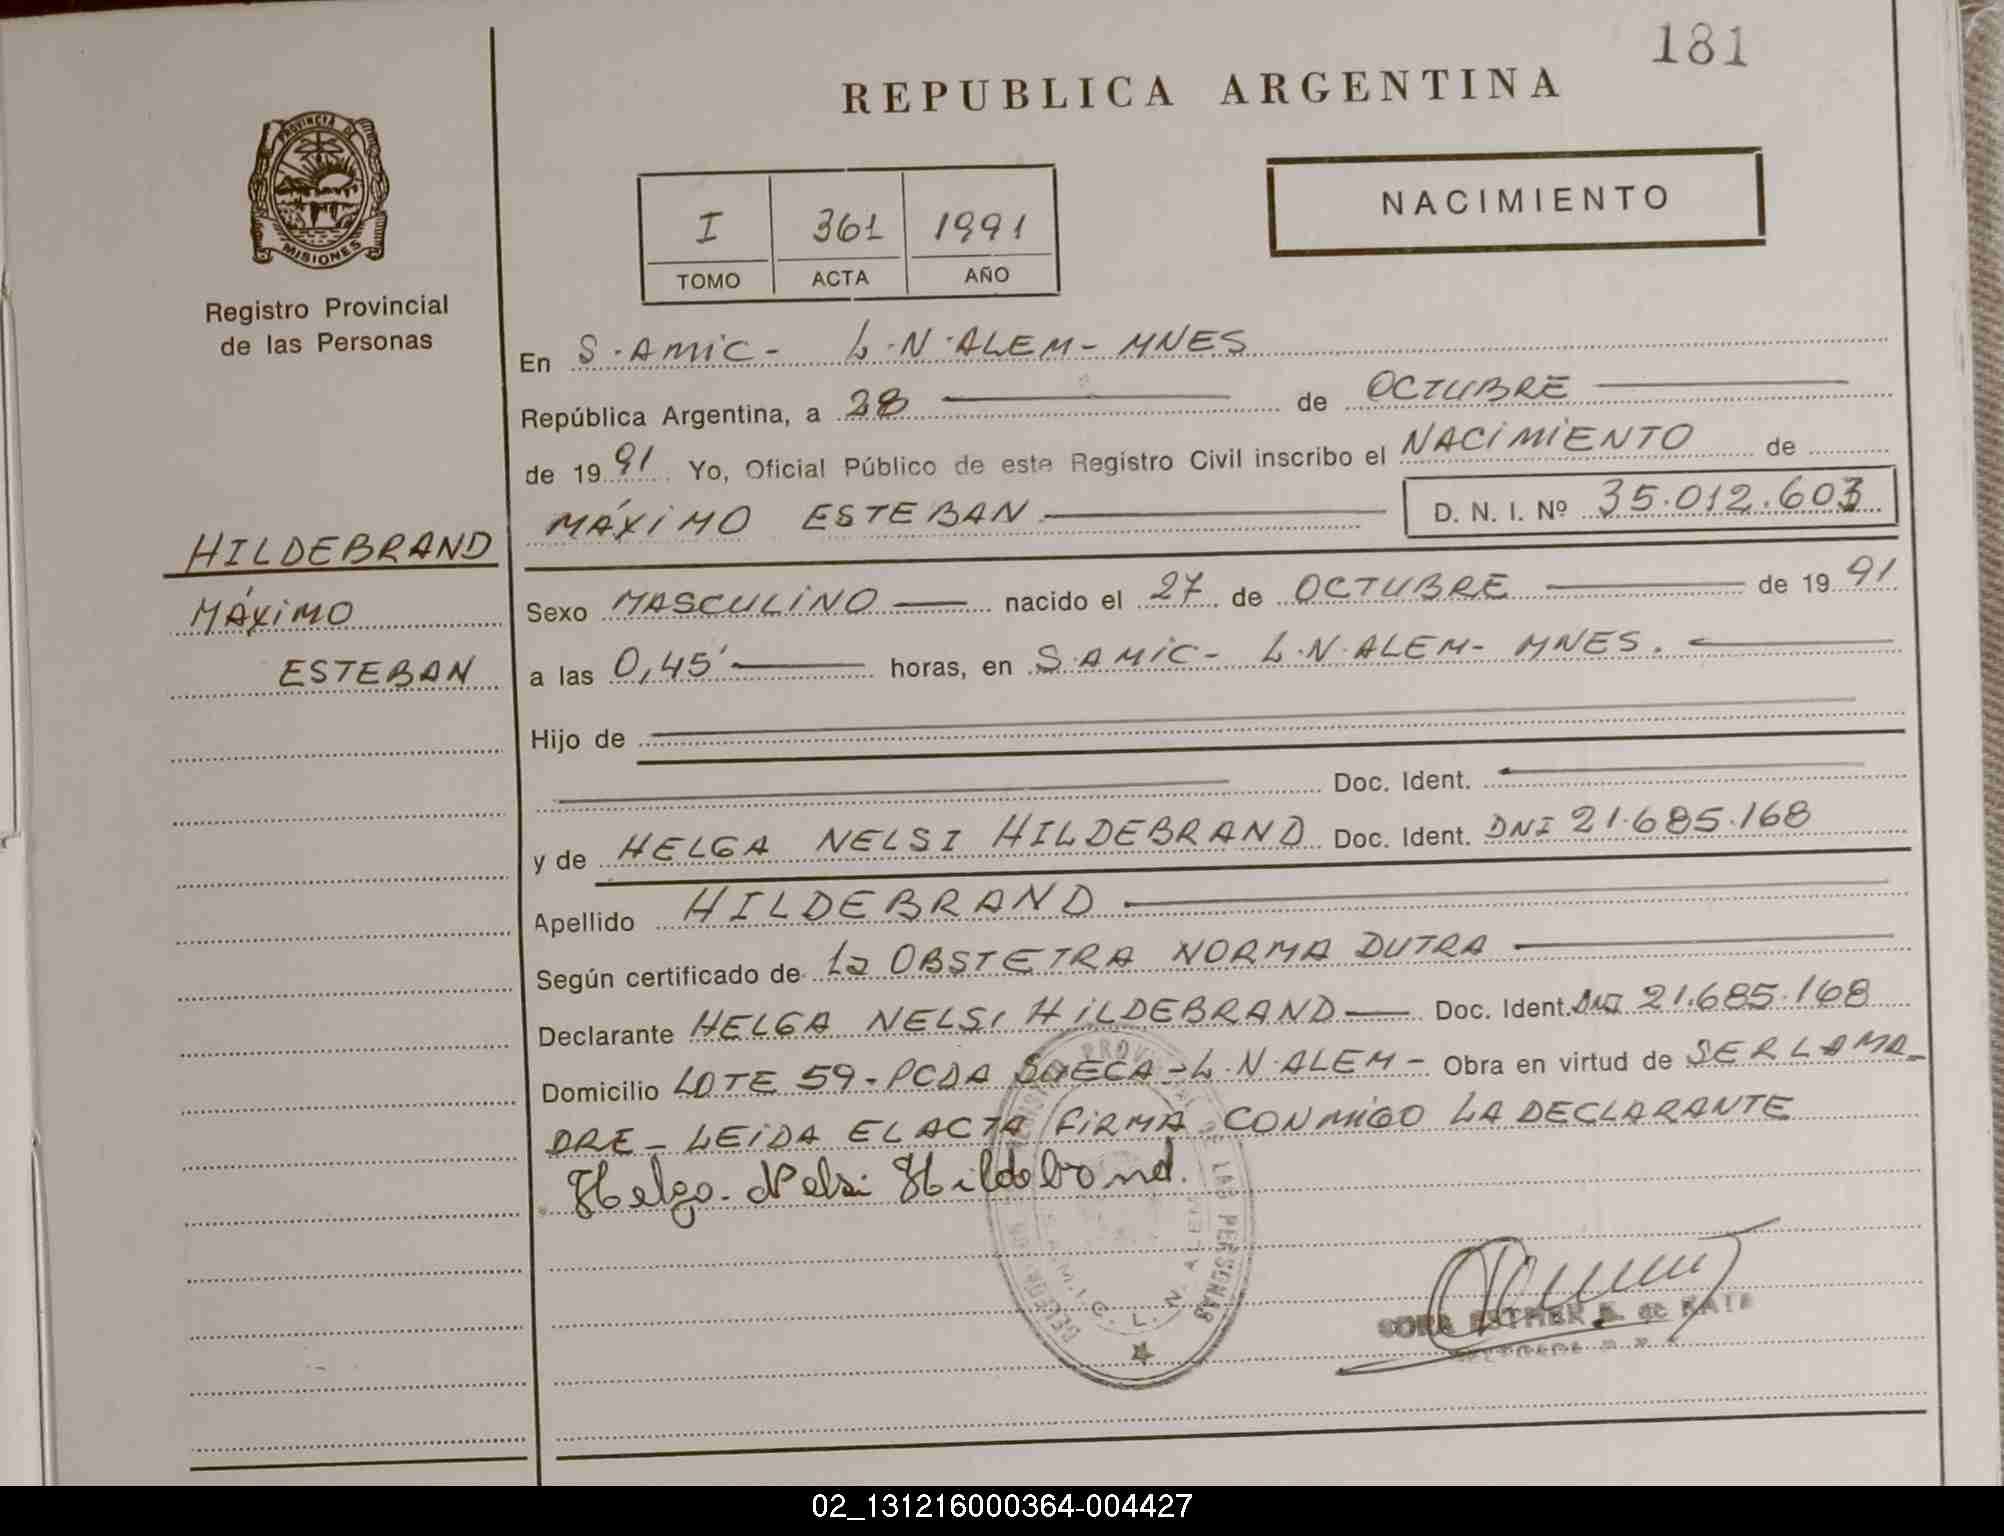 181
REPUBLICA ARGENTINA
NACIMIENTO
I 361 1991
TOMO ACTA AÑO
PROVINCIA DE
MISIONES
Registro Provincial
de las Personas
HILDEBRAND
MÁXIMO
ESTEBAN
En S.AMIC- L.N.ALEM- MNES
República Argentina, a 28 de OCTUBRE
de 1991 Yo, Oficial Público de este Registro Civil inscribo el NACIMIENTO de
MÁXIMO ESTEBAN D. N. I. Nº 35.012.603
Sexo MASCULINO nacido el 27 de OCTUBRE de 1991
a las 0,45' horas, en S.AMIC- L.N.ALEM- MNES.
Hijo de
Doc. Ident.
y de HELGA NELSI HILDEBRAND Doc. Ident. DNI 21.685.168
Apellido HILDEBRAND
Según certificado de La OBSTETRA NORMA DUTRA
Declarante HELGA NELSI HILDEBRAND Doc. Ident. DNI 21.685.168
Domicilio LOTE 59-PCDA SUECA-L.N.ALEM- Obra en virtud de SER LA MA-
DRE - LEIDA EL ACTA FIRMA CONMIGO LA DECLARANTE
Helga Nelsi Hildebrand.
LAS PERSONAS
L. N. ALEM
02_131216000364-004427